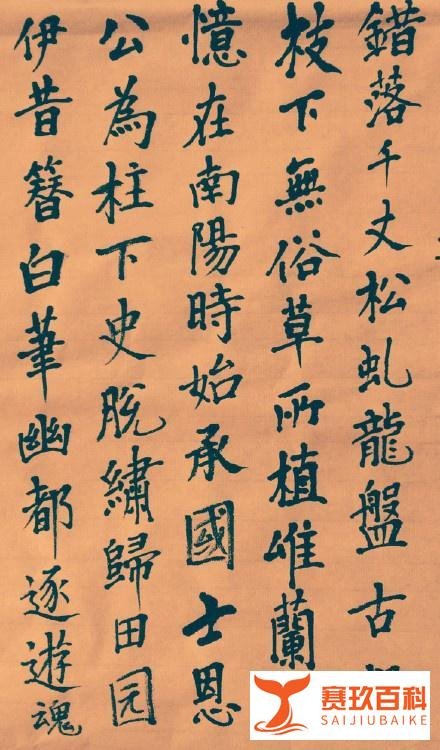 錯落千丈松虬龍盤古
枝下無俗草所植唯蘭
憶在南陽時始承國士恩
公為柱下史脫繡歸田园
伊昔簪白筆幽都逐遊魂
赛玖百科
SAIJIUBAIKE